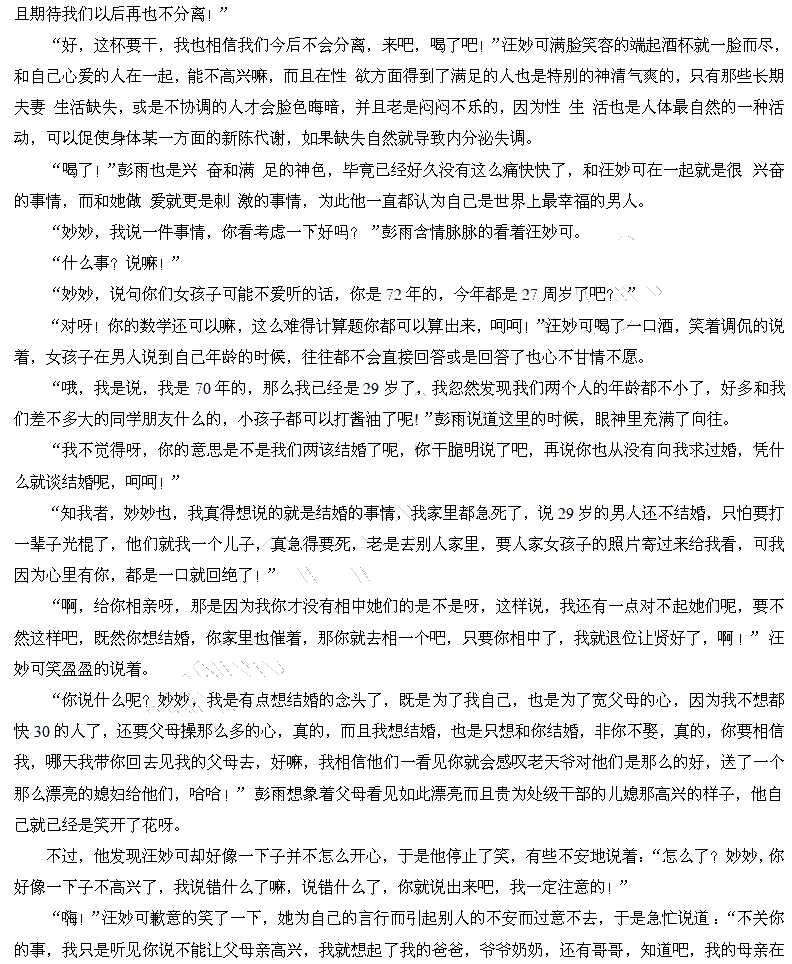 且期待我们以后再也不分离！”
“好，这杯要干，我也相信我们今后不会分离，来吧，喝了吧！”汪妙可满脸笑容的端起酒杯就一脸而尽，
和自己心爱的人在一起，能不高兴嘛，而且在性 欲方面得到了满足的人也是特别的神清气爽的，只有那些长期
夫妻 生活缺失，或是不协调的人才会脸色晦暗，并且老是闷闷不乐的，因为性 生 活也是人体最自然的一种活
动，可以促使身体某一方面的新陈代谢，如果缺失自然就导致内分泌失调。
“喝了！”彭雨也是兴 奋和满 足的神色，毕竟已经好久没有这么痛快快了，和汪妙可在一起就是很 兴奋
的事情，而和她做 爱就更是刺 激的事情，为此他一直都认为自己是世界上最幸福的男人。
“妙妙，我说一件事情，你看考虑一下好吗？ ”彭雨含情脉脉的看着汪妙可。
“什么事？说嘛！”
“妙妙，说句你们女孩子可能不爱听的话，你是 72 年的，今年都是 27 周岁了吧？ ”
“对呀！你的数学还可以嘛，这么难得计算题你都可以算出来，呵呵！”汪妙可喝了一口酒，笑着调侃的说
着，女孩子在男人说到自己年龄的时候，往往都不会直接回答或是回答了也心不甘情不愿。
“哦，我是说，我是 70 年的，那么我已经是 29 岁了，我忽然发现我们两个人的年龄都不小了，好多和我
们差不多大的同学朋友什么的，小孩子都可以打酱油了呢！”彭雨说道这里的时候，眼神里充满了向往。
“我不觉得呀，你的意思是不是我们两该结婚了呢，你干脆明说了吧，再说你也从没有向我求过婚，凭什
么就谈结婚呢，呵呵！”
“知我者，妙妙也，我真得想说的就是结婚的事情，我家里都急死了，说 29 岁的男人还不结婚，只怕要打
一辈子光棍了，他们就我一个儿子，真急得要死，老是去别人家里，要人家女孩子的照片寄过来给我看，可我
因为心里有你，都是一口就回绝了！”
“啊，给你相亲呀，那是因为我你才没有相中她们的是不是呀，这样说，我还有一点对不起她们呢，要不
然这样吧，既然你想结婚，你家里也催着，那你就去相一个吧，只要你相中了，我就退位让贤好了，啊！” 汪
妙可笑盈盈的说着。
“你说什么呢？妙妙，我是有点想结婚的念头了，既是为了我自己，也是为了宽父母的心，因为我不想都
快 30 的人了，还要父母操那么多的心，真的，而且我想结婚，也是只想和你结婚，非你不娶，真的，你要相信
我，哪天我带你回去见我的父母去，好嘛，我相信他们一看见你就会感叹老天爷对他们是那么的好，送了一个
那么漂亮的媳妇给他们，哈哈！” 彭雨想象着父母看见如此漂亮而且贵为处级干部的儿媳那高兴的样子，他自
己就已经是笑开了花呀。
不过，他发现汪妙可却好像一下子并不怎么开心，于是他停止了笑，有些不安地说着：“怎么了？妙妙，你
好像一下子不高兴了，我说错什么了嘛，说错什么了，你就说出来吧，我一定注意的！”
“嗨！”汪妙可歉意的笑了一下，她为自己的言行而引起别人的不安而过意不去，于是急忙说道：“不关你
的事，我只是听见你说不能让父母亲高兴，我就想起了我的爸爸，爷爷奶奶，还有哥哥，知道吧，我的母亲在